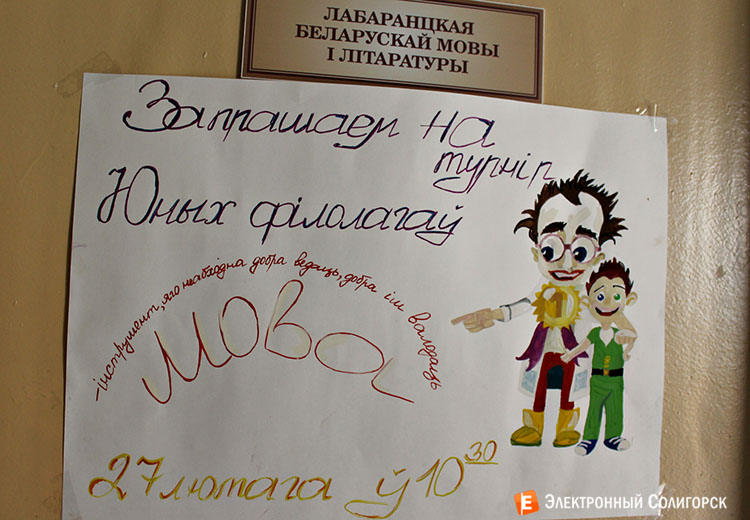 ЛАБАРАНЦКАЯ
БЕЛАРУСКАЙ МОВЫ
І ЛІТАРАТУРЫ
Запрашаем на
турнір
Юных філолагаў
-інструмент, яго неабходна добра ведаць, добра ім валодаць
Мова
27 лютага ў 10 30
Е Электронный Солигорск